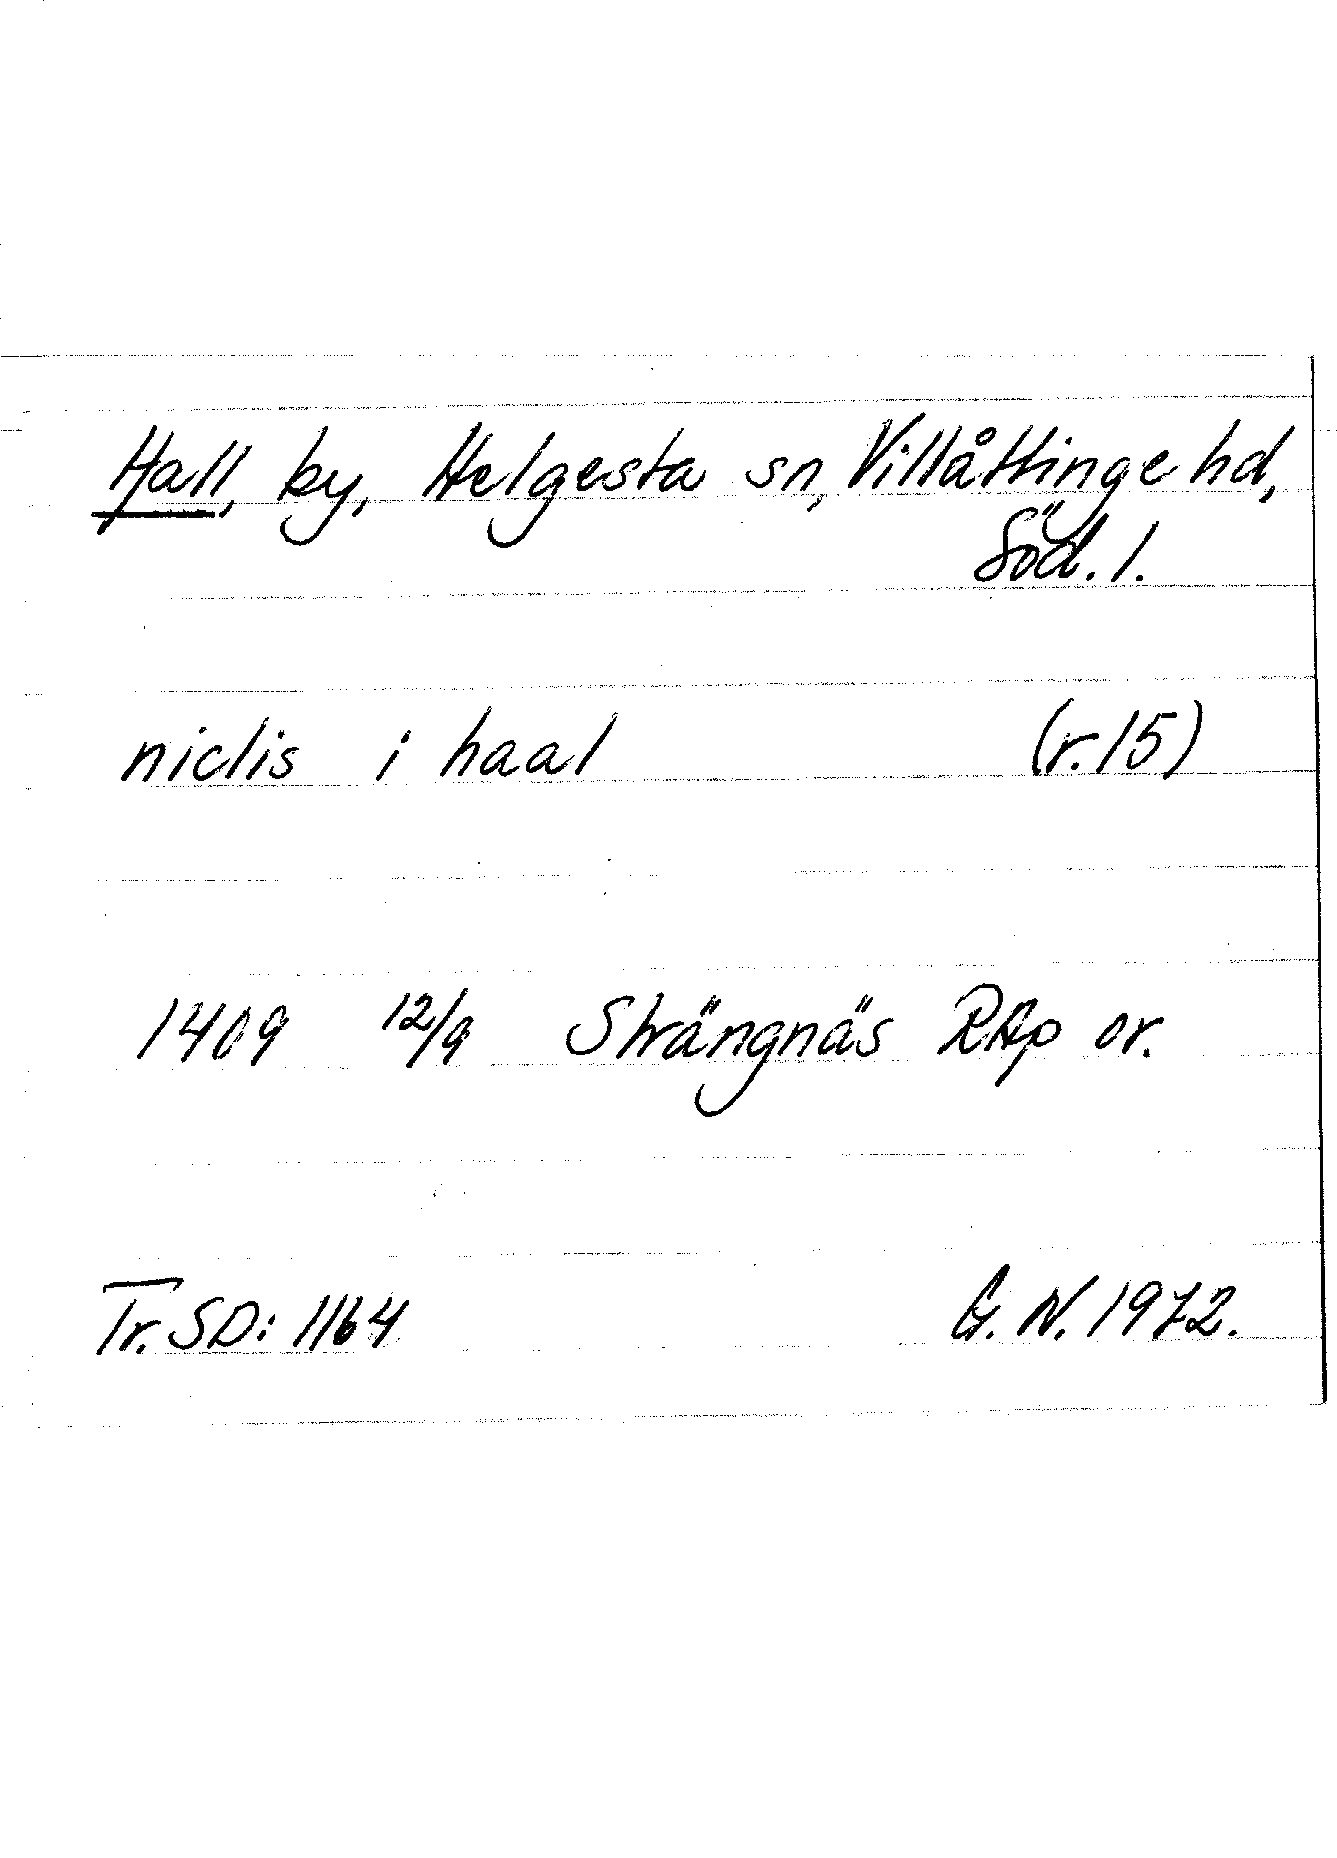 Hall, by, Helgesta sn, Villåttinge hd,
Söd. l.
niclis i haal (r. 15)
1409 12/9 Strängnäs RAp or.
Tr. SD: 1164 G. N. 1972.